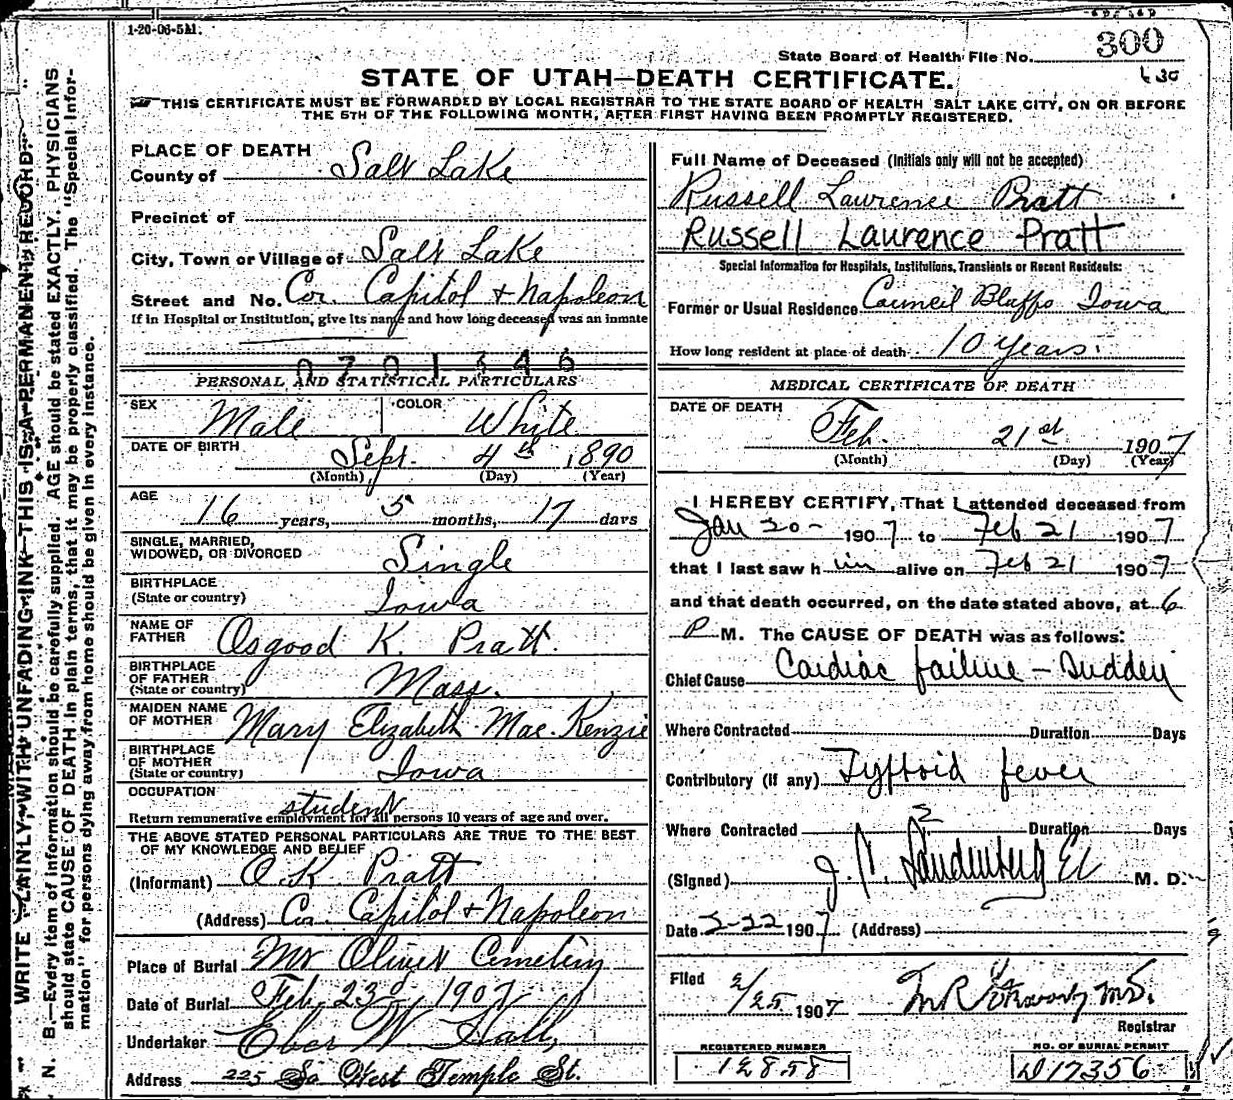 1-20-06-5M.
300
State Board of Health File No.
430
STATE OF UTAH—DEATH CERTIFICATE.
THIS CERTIFICATE MUST BE FORWARDED BY LOCAL REGISTRAR TO THE STATE BOARD OF HEALTH SALT LAKE CITY, ON OR BEFORE
THE 5TH OF THE FOLLOWING MONTH, AFTER FIRST HAVING BEEN PROMPTLY REGISTERED.
WRITE PLAINLY, WITH UNFADING INK—THIS IS A PERMANENT RECORD.
N. B.—Every item of information should be carefully supplied. AGE should be stated EXACTLY. PHYSICIANS
should state CAUSE OF DEATH in plain terms, that it may be properly classified. The "Special Infor-
mation" for persons dying away from home should be given in every instance.
PLACE OF DEATH
County of Salt Lake
Precinct of
City, Town or Village of Salt Lake
Street and No. Cor. Capitol & Napoleon
If in Hospital or Institution, give its name and how long deceased was an inmate
0701346
PERSONAL AND STATISTICAL PARTICULARS
SEX Male COLOR White
DATE OF BIRTH Sept. 4th 1890
(Month) (Day) (Year)
AGE 16 years, 5 months, 17 days
SINGLE, MARRIED,
WIDOWED, OR DIVORCED Single
BIRTHPLACE
(State or country) Iowa
NAME OF
FATHER Osgood K. Pratt.
BIRTHPLACE
OF FATHER
(State or country) Mass.
MAIDEN NAME
OF MOTHER Mary Elizabeth Mac. Kenzie
BIRTHPLACE
OF MOTHER
(State or country) Iowa
OCCUPATION student
Return remunerative employment for all persons 10 years of age and over.
THE ABOVE STATED PERSONAL PARTICULARS ARE TRUE TO THE BEST
OF MY KNOWLEDGE AND BELIEF
(Informant) O.K. Pratt
(Address) Cor. Capitol & Napoleon
Place of Burial Mt Olivet Cemetery
Date of Burial Feb. 23d 1907
Undertaker Eber W. Hall,
Address 225 So West Temple St.
Full Name of Deceased (Initials only will not be accepted)
Russell Lawrence Pratt
Russell Laurence Pratt
Special Information for Hospitals, Institutions, Transients or Recent Residents:
Former or Usual Residence Council Bluffs Iowa
How long resident at place of death 10 years.
MEDICAL CERTIFICATE OF DEATH
DATE OF DEATH
Feb. 21st 1907
(Month) (Day) (Year)
I HEREBY CERTIFY, That I attended deceased from
Jan 20- 1907 to Feb 21 1907
that I last saw him alive on Feb 21 1907
and that death occurred, on the date stated above, at 6
P M. The CAUSE OF DEATH was as follows:
Chief Cause Cardiac failure - Sudden
Where Contracted Duration Days
Contributory (if any) Typhoid fever
Where Contracted Duration Days
(Signed) J. M. D.
Date 2-22 1907 (Address)
Filed 2/25 1907
Registrar
REGISTERED NUMBER
12858
NO. OF BURIAL PERMIT
D17356